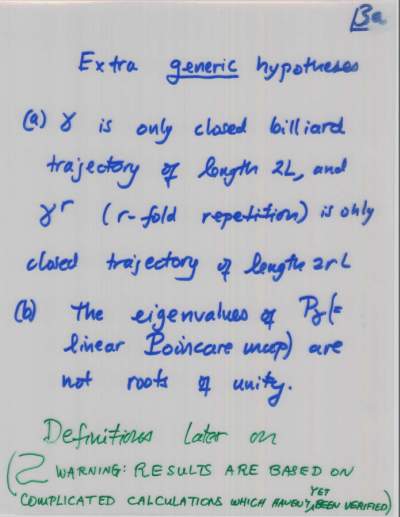 13a
Extra generic hypotheses
(a) γ is only closed billiard
trajectory of length 2L, and
γ^r (r-fold repetition) is only
closed trajectory of length 2rL
(b) The eigenvalues of P_γ (=
linear Poincare map) are
not roots of unity.
Definitions later on
(WARNING: RESULTS ARE BASED ON
YET
COMPLICATED CALCULATIONS WHICH HAVEN'T BEEN VERIFIED)